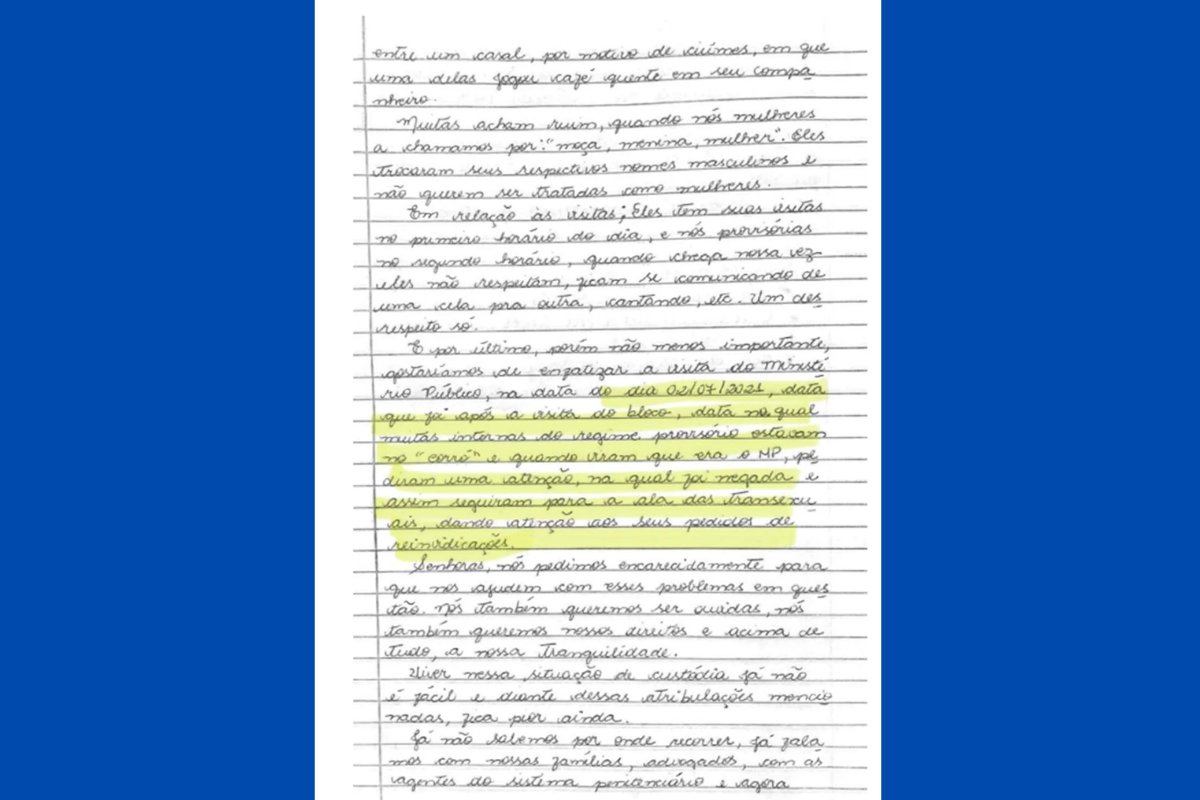 entre um casal, por motivo de ciúmes, em que
uma delas jogou café quente em seu compa
nheiro.
Muitas acham ruim, quando nós mulheres
a chamamos por: "moça, menina, mulher". Eles
trocaram seus respectivos nomes masculinos e
não querem ser tratadas como mulheres.
Em relação às visitas; Eles tem suas visitas
no primeiro horário do dia, e nós provisórias
no segundo horário, quando chega nossa vez
eles não respeitam, ficam se comunicando de
uma cela pra outra, cantando, etc. Um des
respeito só.
E por último, porém não menos importante,
gostaríamos de enfatizar a visita do Ministé
rio Público, na data do dia 02/07/2021, data
que foi após a visita do bloco, data no qual
muitas internas do regime provisório estavam
no "corró" e quando viram que era o MP, pe
diram uma atenção, na qual foi negada e
assim seguiram para a ala das transexu
ais, dando atenção aos seus pedidos de
reinvidicações.
Senhoras, nós pedimos encarecidamente para
que nos ajudem com esses problemas em ques
tão. Nós também queremos ser ouvidas, nós
também queremos nossos direitos e acima de
tudo, a nossa tranquilidade.
Viver nessa situação de custódia já não
é fácil e diante dessas atribulações mencio
nadas, fica pior ainda.
Já não sabemos por onde recorrer, já fala
mos com nossas famílias, advogados, com as
agentes do sistema penitenciário e agora